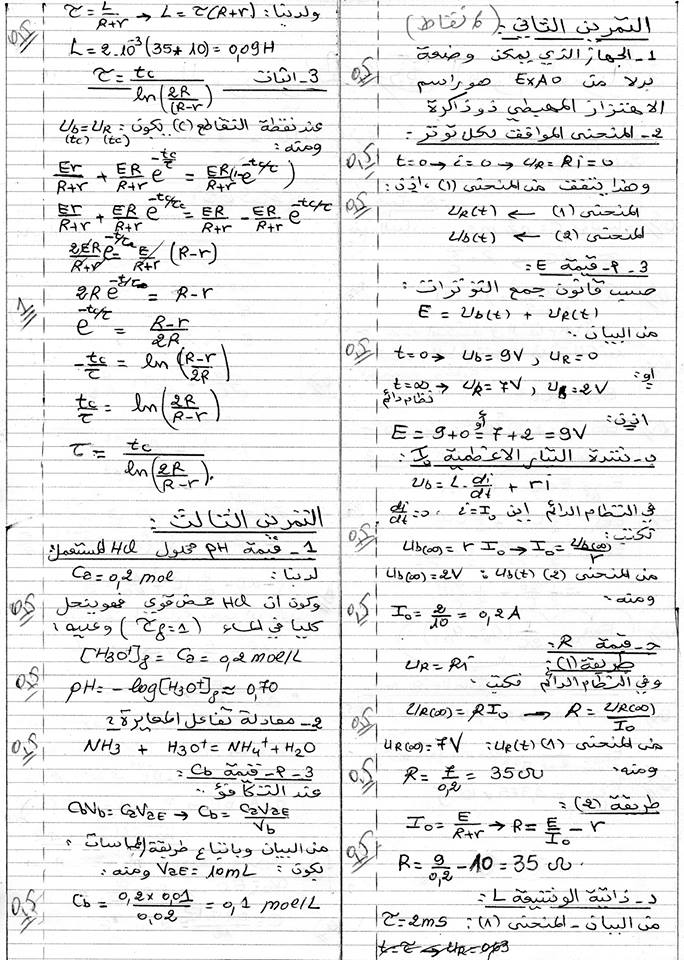 التمرين الثاني : (6 نقاط)
1- الجهاز الذي يمكن وضعه
بدلا من ExAO هو راسم
الاهتزاز المهبطي ذو ذاكرة
2- المنحنى الموافق لكل توتر :
t=0 → i=0 → uR = Ri = 0
وهذا يتفق من المنحنى (1)، اذن :
المنحنى (1) ← uR(t)
المنحنى (2) ← ub(t)
3 - P - قيمة E :
حسب قانون جمع التوترات :
E = ub(t) + uR(t)
من البيان :
t=0 → ub = 9V , uR = 0
او :
t=∞ → uR = 7V , uB = 2V
نظام دائم
اذن :
E = 9+0 أو = 7+2 = 9V
ب- شدة التيار الاعظمية I0 :
ub = L . di/dt + ri
في النظام الدائم اين i = I0 ، di/dt = 0
نكتب :
ub(∞) = r I0 → I0 = ub(∞)/r
من المنحنى (2) ub(t) : ub(∞) = 2V
ومنه :
I0 = 2/10 = 0,2 A
حـ - قيمة R :
طريقة (1) :
uR = Ri
وفي النظام الدائم نكتب :
uR(∞) = R I0 → R = uR(∞)/I0
من المنحنى (1) uR(t) : uR(∞) = 7V
ومنه :
R = 7/0,2 = 35 Ω
طريقة (2) :
I0 = E/(R+r) → R = E/I0 - r
R = 9/0,2 - 10 = 35 Ω
د- ذاتية الوشيعة L :
من البيان - المنحنى (1) : τ = 2ms
t=τ → uR = 0,63
ولدينا : τ = L/(R+r) → L = τ(R+r)
L = 2.10⁻³ (35+10) = 0,09 H
3- اثبات τ = tc / ln(2R/(R-r))
عند نقطة التقاطع (c) يكون : ub(tc) = uR(tc)
ومنه :
Er/(R+r) + ER/(R+r) e^(-tc/τ) = ER/(R+r) (1-e^(-tc/τ))
Er/(R+r) + ER/(R+r) e^(-tc/τ) = ER/(R+r) - ER/(R+r) e^(-tc/τ)
2ER/(R+r) e^(-tc/τ) = E/(R+r) (R-r)
2R e^(-tc/τ) = R-r
e^(-tc/τ) = (R-r)/2R
-tc/τ = ln((R-r)/2R)
tc/τ = ln(2R/(R-r))
τ = tc / ln(2R/(R-r)).
التمرين الثالث :
1 - قيمة pH محلول HCl المستعمل :
لدينا : Ca = 0,2 mol
وكون ان HCl حمض قوي فهو ينحل
كليا في الماء (τf = 1) وعليه :
[H3O⁺]f = Ca = 0,2 mol/L
pH = -log[H3O⁺]f ≈ 0,70
2- معادلة تفاعل المعايرة :
NH3 + H3O⁺ = NH4⁺ + H2O
3 - P - قيمة Cb :
عند التكافؤ :
CbVb = CaVaE → Cb = CaVaE/Vb
من البيان وباتباع طريقة المماسات :
يكون : VaE = 10mL ومنه :
Cb = (0,2 x 0,01)/0,02 = 0,1 mol/L